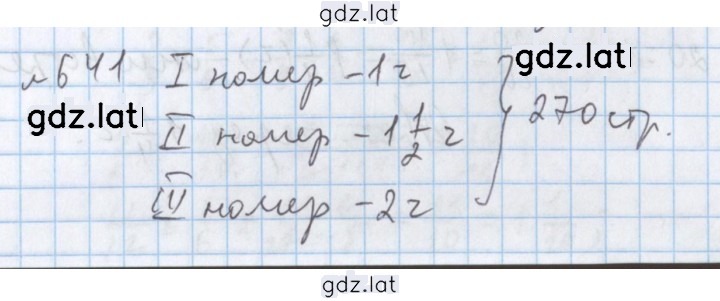 gdz.lat
№641 I номер - 1 ч gdz.lat
gdz.lat II номер - 1 1/2 ч 270 стр.
III номер - 2 ч
gdz.lat